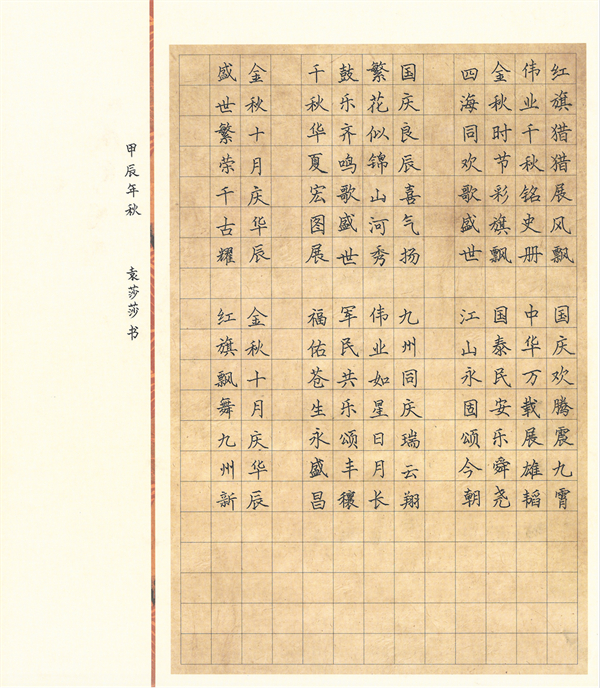 红旗猎猎展风飘 国庆欢腾震九霄
伟业千秋铭史册 中华万载展雄韬
金秋时节彩旗飘 国泰民安乐舜尧
四海同欢歌盛世 江山永固颂今朝
国庆良辰喜气扬 九州同庆瑞云翔
繁花似锦山河秀 伟业如星日月长
鼓乐齐鸣歌盛世 军民共乐颂丰穰
千秋华夏宏图展 福佑苍生永盛昌
金秋十月庆华辰 金秋十月庆华辰
盛世繁荣千古耀 红旗飘舞九州新
甲辰年秋 袁莎莎书